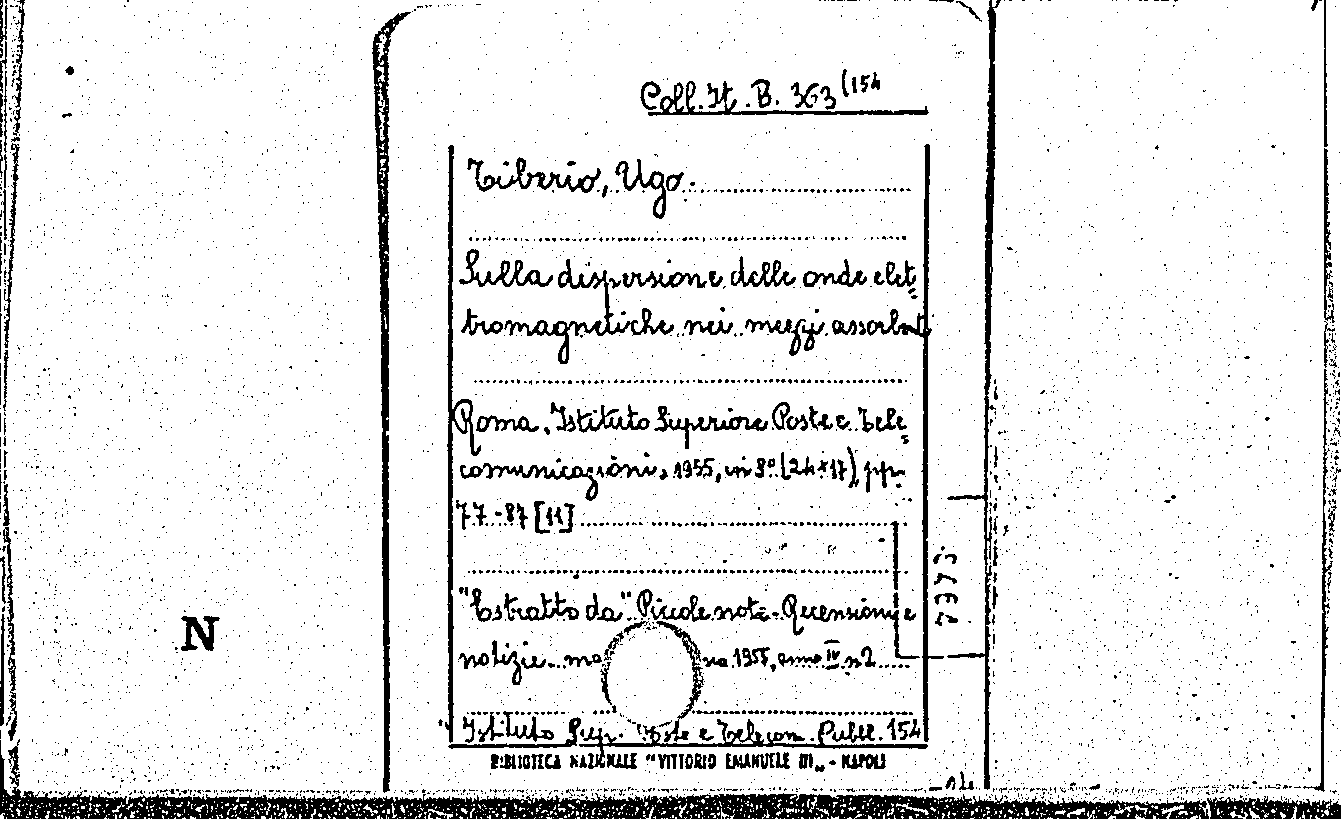 Coll. It. B. 363 (154
Tiberio, Ugo.
Sulla dispersione delle onde elet=
tromagnetiche nei mezzi assorbenti
Roma, Istituto Superiore Poste e Tele=
comunicazioni, 1955, in 8° (24x17), pp.
77-87 [11]
"Estratto da" Piccole note - Recensioni e
notizie - 1955, anno IV n 2
Istituto Sup. Poste e Telecom. Pubbl. 154
BIBLIOTECA NAZIONALE "VITTORIO EMANUELE III" - NAPOLI
7373
N